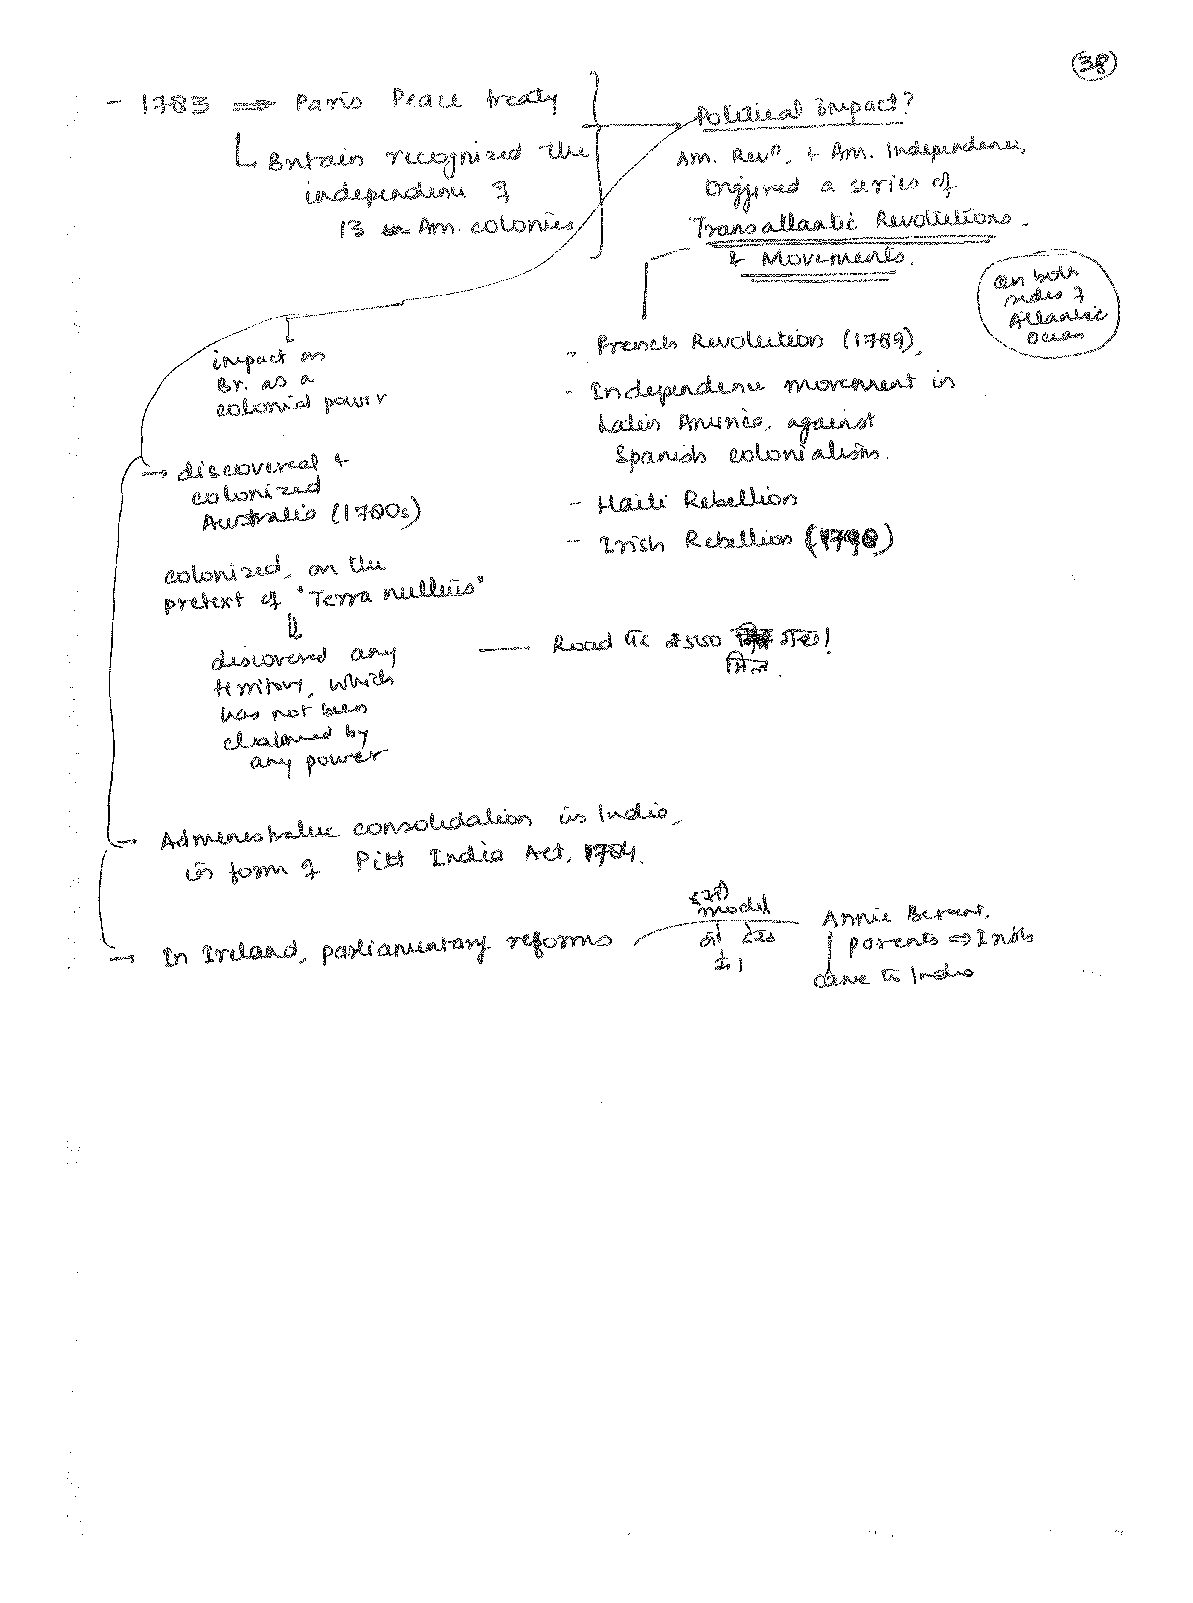 38
- 1783 ⇒ Paris Peace treaty
Britain recognized the
independence of
13 Am. colonies
Political Impact?
Am. Revⁿ. & Am. Independence,
triggered a series of
Transatlantic Revolutions.
& Movements.
On both
sides of
Atlantic
Ocean
- French Revolution (1789),
- Independence movement in
Latin America, against
Spanish colonialism.
- Haiti Rebellion
- Irish Rebellion (1798)
impact on
Br. as a
colonial power
→ discovered &
colonized
Australia (1780s)
colonized, on the
pretext of "Terra nullius"
discovered any
territory, which
has not been
claimed by
any power
Road पे गया!
मिल
→ Administrative consolidation in India,
in form of Pitt India Act, 1784.
→ In Ireland, parliamentary reforms
model
Annie Besant.
parents ⇒ Irish
came to India